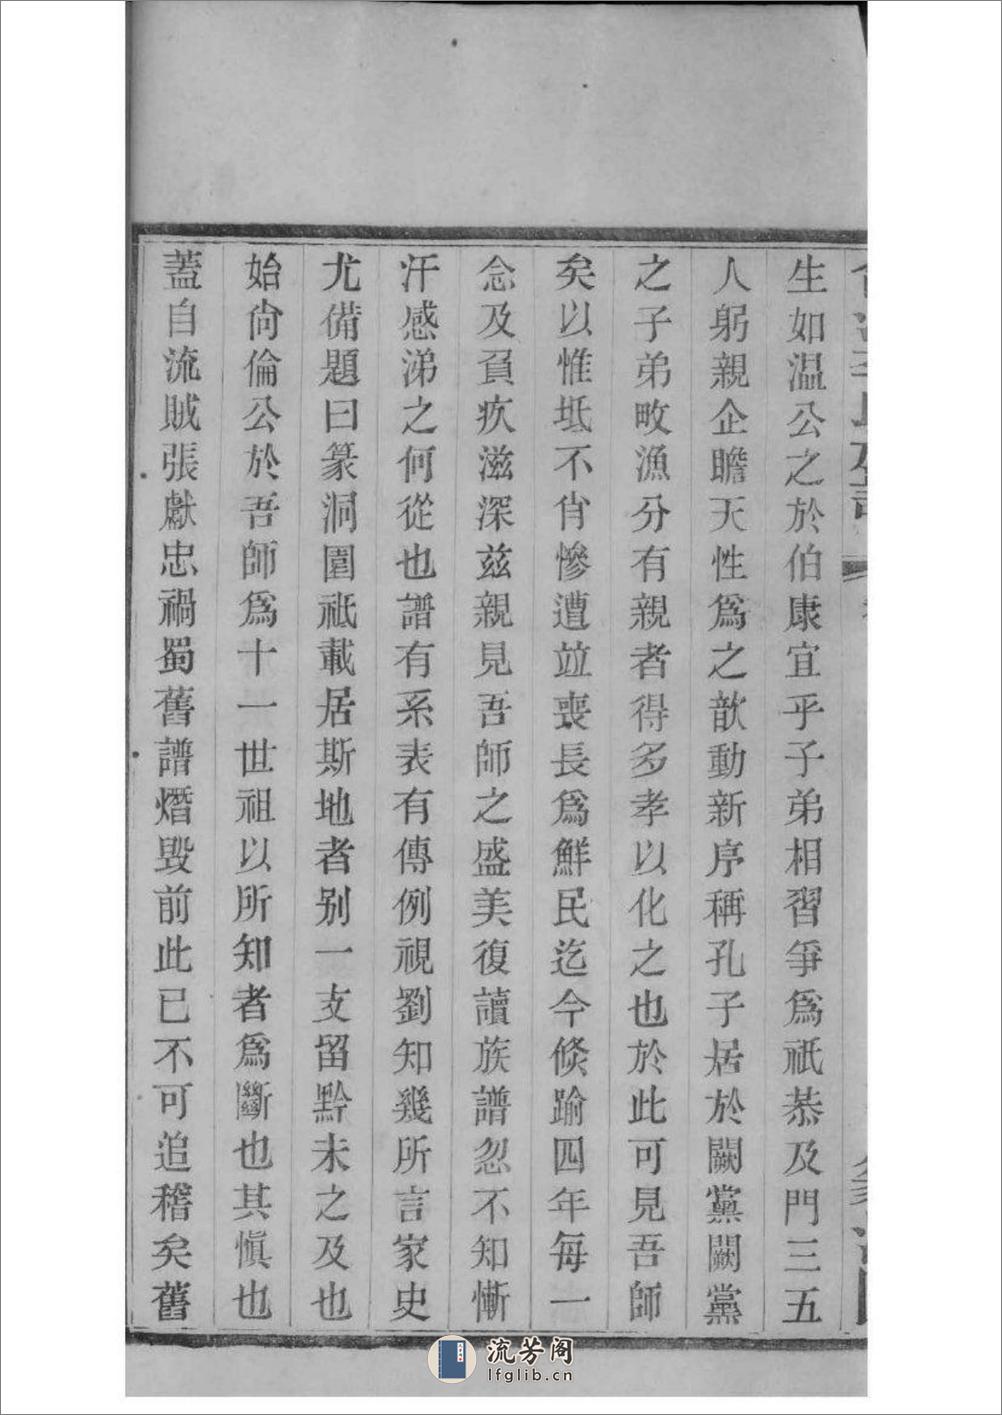 生如温公之於伯康宜乎子弟相習爭爲祇恭及門三五
人躬親企瞻天性爲之歆動新序稱孔子居於闕黨闕黨
之子弟畋漁分有親者得多孝以化之也於此可見吾師
矣以惟坻不肖慘遭竝喪長爲鮮民迄今倏踰四年每一
念及負疚滋深兹親見吾師之盛美復讀族譜忽不知慚
汗感涕之何從也譜有系表有傳例視劉知幾所言家史
尤備題曰篆洞圍祇載居斯地者别一支留黔未之及也
始尙倫公於吾師爲十一世祖以所知者爲斷也其愼也
蓋自流賊張獻忠禍蜀舊譜燬毁前此已不可追稽矣舊
流芳阁
lfglib.cn